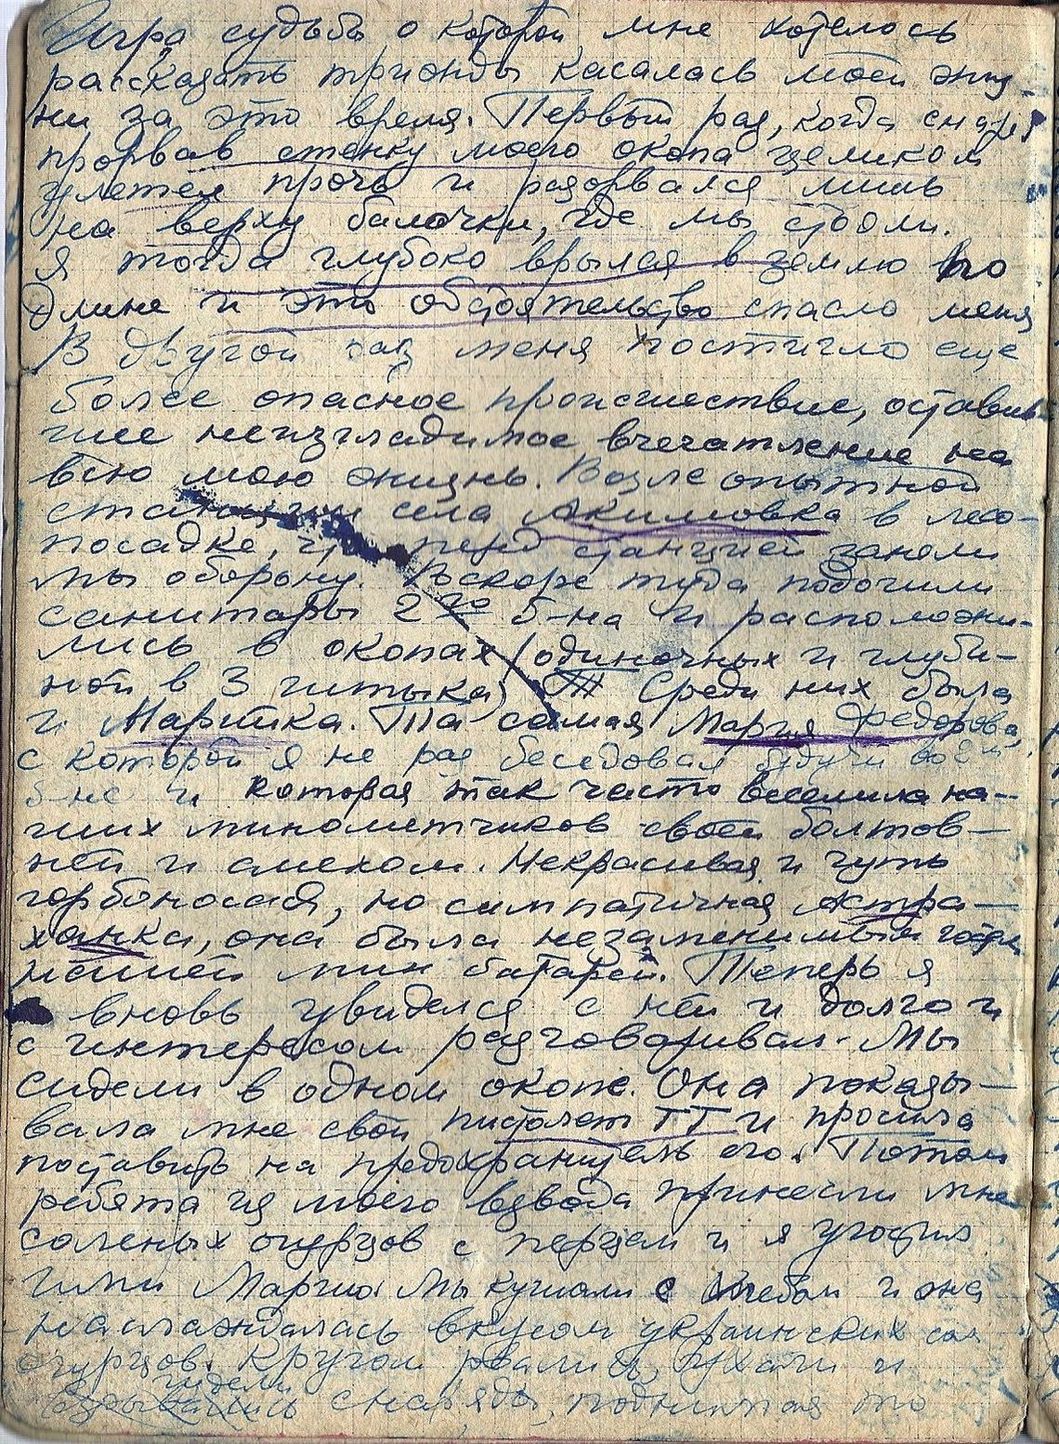 Игра судьбы о которой мне хотелось
рассказать трижды касалась моей жиз-
ни за это время. Первый раз, когда снаряд
прорвав стенку моего окопа целиком
улетел прочь и разорвался лишь
на верху балочки, где мы стояли.
Я тогда глубоко врылся в землю по
длине и это обстоятельство спасло меня
В другой раз меня постигло еще
более опасное происшествие, оставив
шее неизгладимое впечатление на
всю мою жизнь. Возле опытной
станции села Акимовка в лесо-
посадке, что перед станцией заняли
мы оборону. Вскоре туда подочили
санитары 2го б-на и расположи-
лись в окопах (одиночных и глуби-
ной в 3 штыка) Среди них была
и Марийка. Та самая Мария Федорова,
с которой я не раз беседовал будучи во 2м
б-не и которая так часто веселила на-
ших минометчиков своей болтов-
ней и смехом. Некрасивая и чуть
горбоносая, но симпатичная Астра-
ханка, она была незаменимым
нашей мин батареи. Теперь я
вновь увиделся с ней и долго и
с интересом разговаривал. Мы
сидели в одном окопе. Она показы-
вала мне свой пистолет ТТ и просила
поставить на предохранитель его. Потом
ребята из моего взвода принесли мне
соленых огурцов с перцем и я угостил
ими Марию. Мы кушали с хлебом и она
наслаждалась вкусом украинских сол
огурцов. Кругом рвались, ухали и
гудели
взрывались снаряды, поднимая то